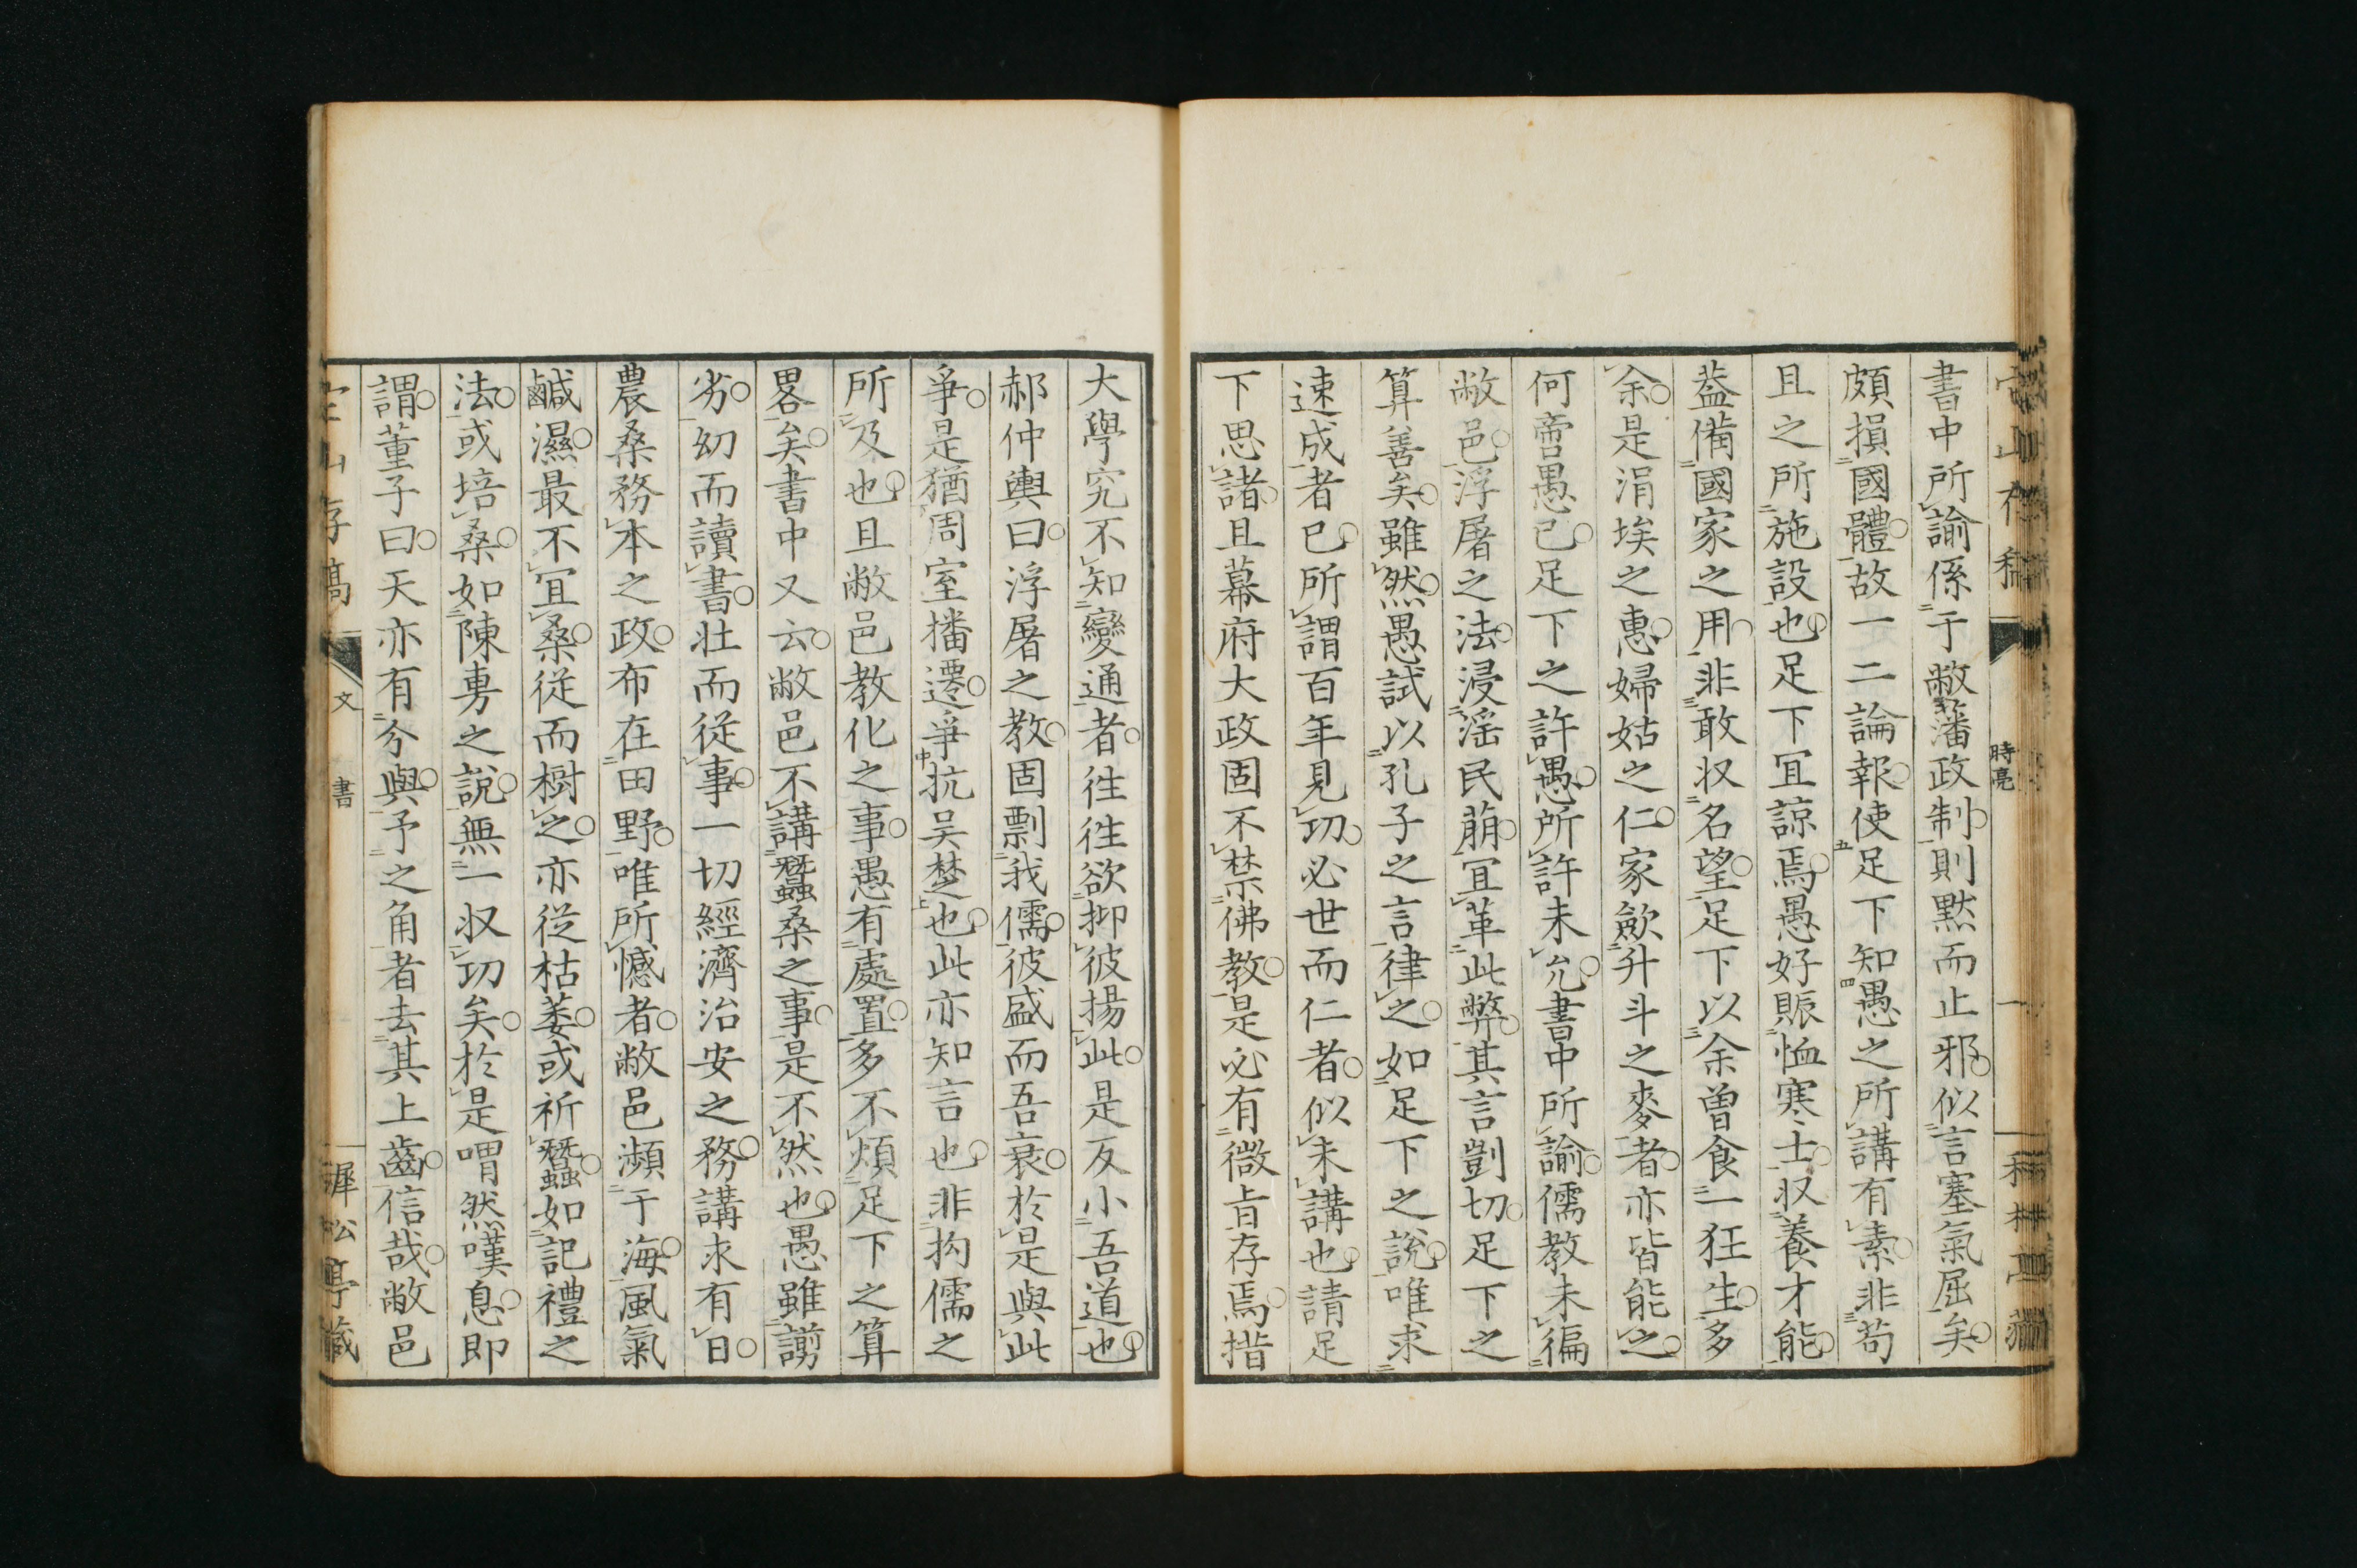 書中所諭係于敝藩政制則黙而止邪似言塞氣屈矣
頗損國體故一二論報使足下知愚之所講有素非苟
且之所施設也足下冝諒焉愚好賑恤寒士収養才能
葢備國家之用非敢収名望足下以余曽食一狂生多
余是涓埃之惠婦姑之仁家歛升斗之麥者亦皆能之
何啻愚已足下之許愚所許未允書中所諭儒教未徧
敝邑浮屠之法浸滛民萠冝革此弊其言剴切足下之
算善矣雖然愚試以孔子之言律之如足下之說唯求
速成者已所謂百年見功必世而仁者似未講也請足
下思諸且幕府大政固不禁佛教是必有微㫖存焉揩
大學究不知變通者徃徃欲抑彼揚此是反小吾道也
郝仲輿曰浮屠之教固剽我儒彼盛而吾衰於是與此
爭是猶周室播遷爭抗吴楚也此亦知言也非拘儒之
所及也且敝邑教化之事愚有處置多不煩足下之算
畧矣書中又云敝邑不講蠶桑之事是不然也愚雖謭
劣幼而讀書壮而従事一切經濟治安之務講求有日
農桑務本之政布在田野唯所憾者敝邑瀕于海風氣
鹹濕最不冝桑従而樹之亦従枯萎或祈蠶如記禮之
法或培桑如陳旉之說無一収功矣於是喟然嘆息即
謂董子曰天亦有分與予之角者去其上齒信哉敝邑
文 書
時亮